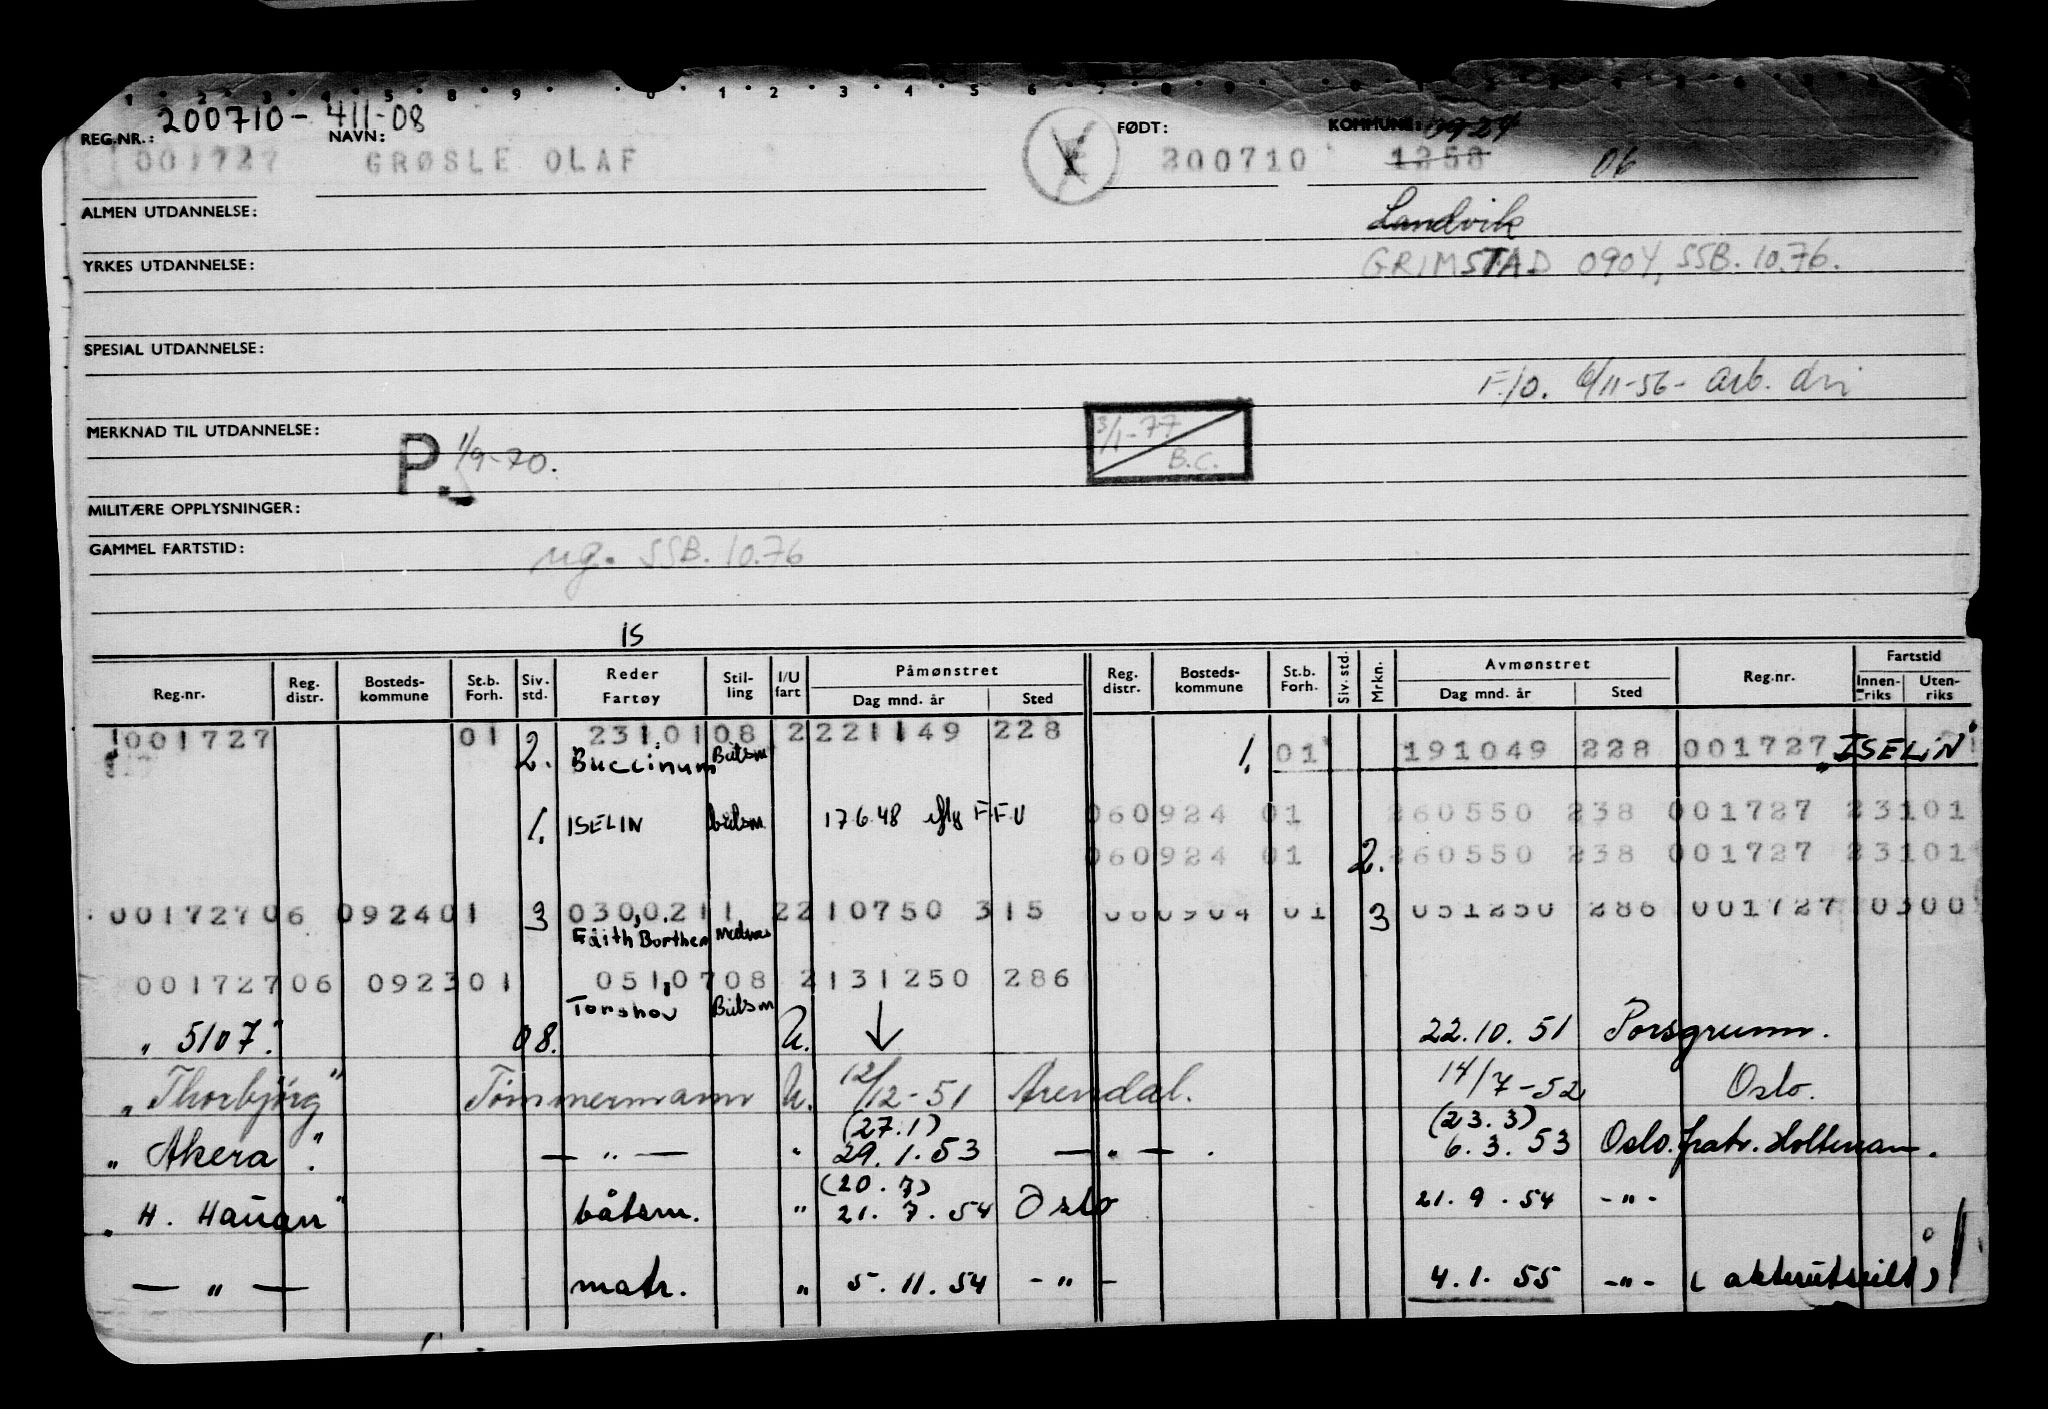 200710-411-08
REG.NR.: NAVN: FØDT: KOMMUNE:
001727 GRØSLE OLAF 200710 1258 06
ALMEN UTDANNELSE: Landvik
YRKES UTDANNELSE: GRIMSTAD 0904, SSB. 10.76.
SPESIAL UTDANNELSE:
F/O. 6/11-56- arb. dir
MERKNAD TIL UTDANNELSE: P. 1/9-70. 3/1-77 B.C.
MILITÆRE OPPLYSNINGER:
GAMMEL FARTSTID: ug. SSB. 10.76
IS
Reg.nr. Reg. distr. Bosteds-kommune St.b. Forh. Siv. std. Reder Fartøy Stil-ling I/U fart Påmønstret Dag mnd. år Sted Reg. distr. Bosteds-kommune St.b. Forh. Siv. std. Mrkn. Avmønstret Dag mnd. år Sted Reg.nr. Fartstid Innen-riks Uten-riks
001727 01 231.01 08 2 221149 228
2. Buccinum Båtsm 1. 01 191049 228 001727 "ISELIN"
1. ISELIN båtsm 17.6.48 060924 01 260550 238 001727 23101
060924 01 2. 260550 238 001727 23101
001727 06 0924 01 3 030,0.2 11 2 210750 315 060904 01 3 051250 286 001727 0300
Faith Borthen Matros
001727 06 0923 01 051,07 08 2 131250 286
Torshov Båtsm
" 5107." 08. U. ↓ 22.10.51 Porsgrunn.
"Thorbjörg" Tømmermann U. 12/12-51 Arendal. 14/7-52 Oslo.
(27.1) (23.3)
" Akera". — " — " 29.1.53 — " — . 6.3.53 Oslo. fratr. Holtenau.
(20.7)
" H. Hauan" båtsm. " 21.7.54 Oslo 21.9.54 - " -
— " — matr. " 5.11.54 - " - 4.1.55 - " - (akterutseilt)